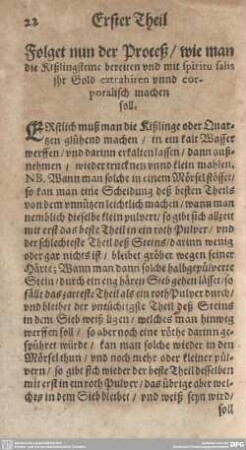 22 Erster Theil
Folget nun der Proceß / wie man
die Kißlingsteine bereiten vnd mit spiritu salis
jhr Gold extrahiren vnnd cor-
poralisch machen
soll.
ERstlich muß man die Kißlinge oder Quar-
tzen glühend machen / in ein kalt Wasser
werffen / vnd darinn erkalten lassen / dann auß-
nehmen / wieder trucknen vnnd klein mahlen.
NB. Wann man solche in einem Mörsel stösset /
so kan man eine Scheidung deß besten Theils
von dem vnnützen leichtlich machen / wann man
nemblich dieselbe klein pulvert / so gibt sich allzeit
mit erst das beste Theil in ein roth Pulver / vnd
der schlechteste Theil deß Steins / darinn wenig
oder gar nichts ist / bleibet gröber wegen seiner
Härte; Wann man dann solche halbgepülverte
Stein / durch ein eng hären Sieb gehen lässet / so
fällt das zarteste Theil als ein roth Pulver durch /
vnd bleibet der vntüchtigste Theil deß Steins
in dem Sieb weiß ligen / welches man hinweg
werffen soll / so aber noch eine röthe darinn ge-
spühret würde / kan man solche wieder in den
Mörsel thun / vnd noch mehr oder kleiner pül-
vern / so gibt sich wieder der beste Theil desselben
mit erst in ein roth Pulver / das übrige aber wel-
ches in dem Sieb bleibet / vnd weiß seyn wird /
soll